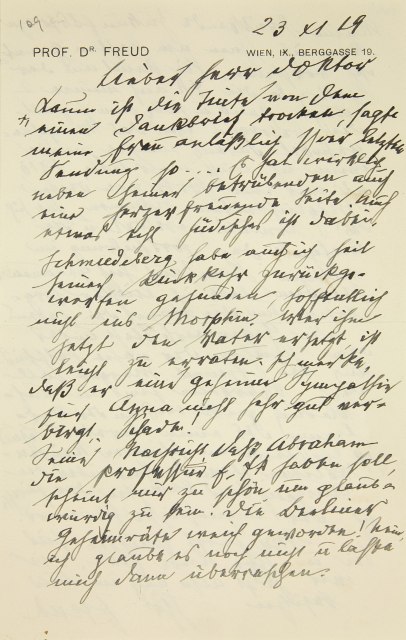 109
23 XI 19
PROF. DR. FREUD
WIEN, IX., BERGGASSE 19.
Lieber Herr Doktor
Kaum ist die Tinte von dem
einen Dankbrief trocken, sagte
meine Frau anläßlich Ihrer letzten
Sendung so.... Es hat wirklich
neben seiner betrübenden auch
eine herzerfreuende Seite, auch
etwas echt jüdisches ist dabei.
Schmiedeberg habe auch ich seit
seiner Rückkehr zurückge-
worfen gefunden, hoffentlich
nicht ins Morphin. Wer ihm
jetzt den Vater ersetzt, ist
leicht zu erraten. Ich merke,
daß er eine geheime Sympathie
für Anna nicht sehr gut ver-
birgt. Schade.
Seine Nachricht, daß Abraham
die Professur f. ΨΑ haben soll,
scheint mir zu schön um glaub-
würdig zu sein. Die Berliner
Geheimräte weich geworden! Nein,
ich glaube es noch nicht u lasse
mich dann überraschen.